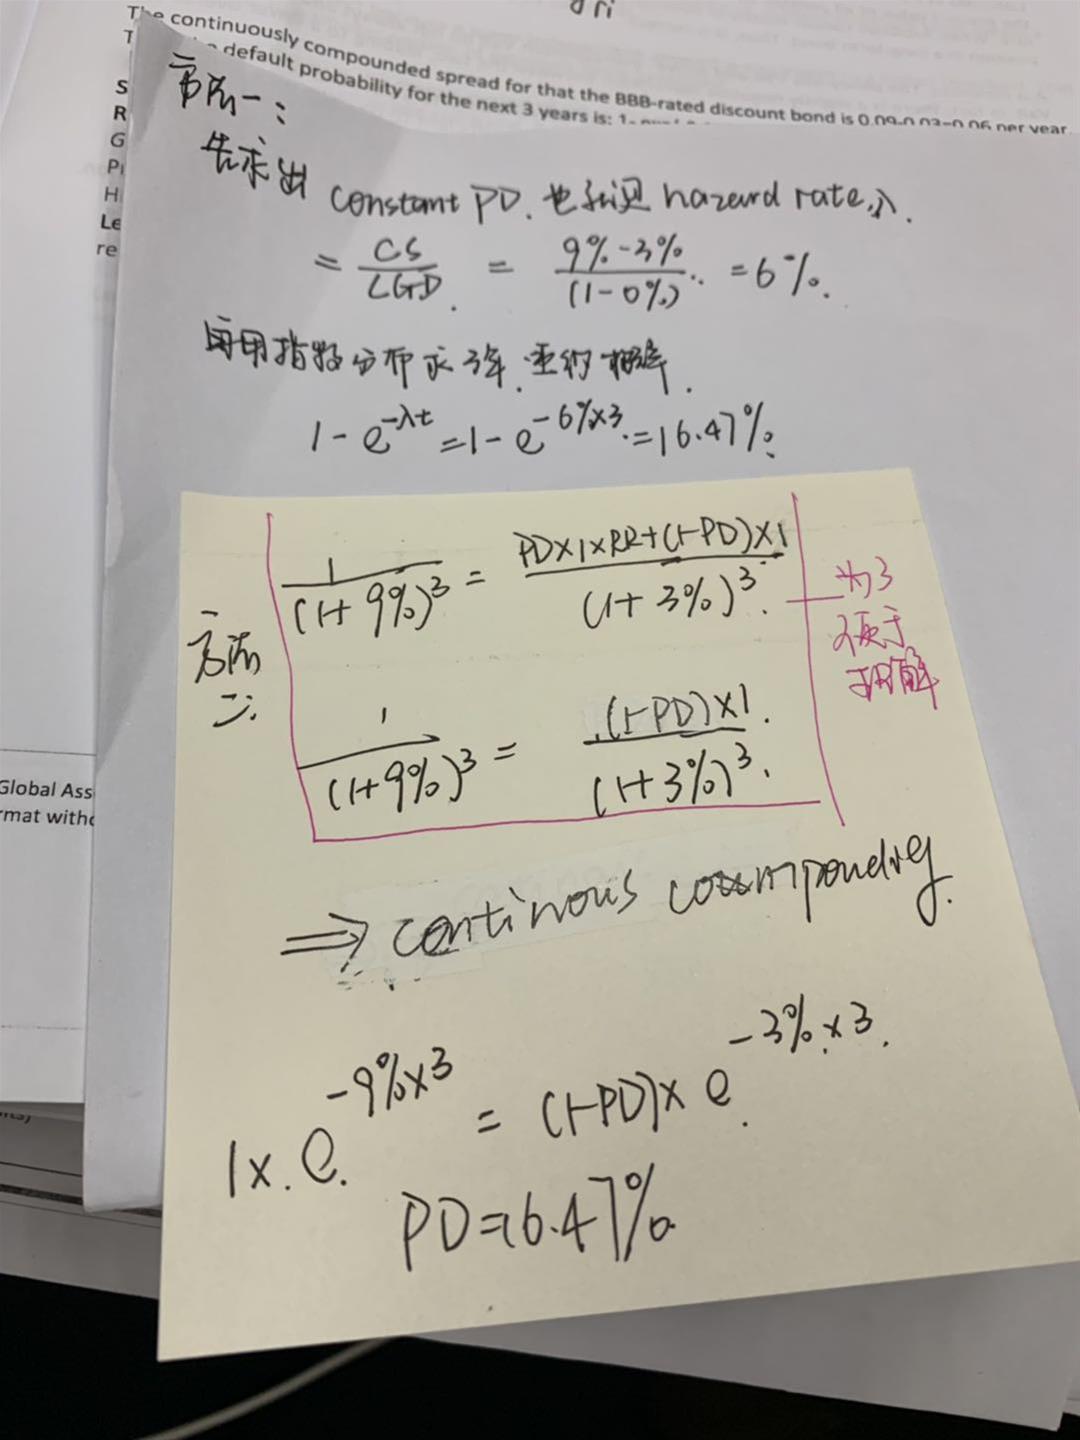 The continuously compounded spread for that the BBB-rated discount bond is 0.09-0.03=0.06 per year
default probability for the next 3 years is: 1-
S
R
G
Pi
Hi
Le
re
方法一：
先求出 constant PD. 也就是 hazard rate, λ.
= CS / LGD. = 9%-3% / (1-0%) = 6%.
再用指数分布求 3年 违约概率.
1 - e^{-λt} = 1 - e^{-6%×3} = 16.47%
方法二:
1 / (1+9%)^3 = PD×1×RR+(1-PD)×1 / (1+3%)^3
1 / (1+9%)^3 = (1-PD)×1 / (1+3%)^3
为了
便于
理解
⇒ continous coumpoundig.
1× e^{-9%×3} = (1-PD)× e^{-3%×3}
PD=16.47%
Global Ass
rmat witho